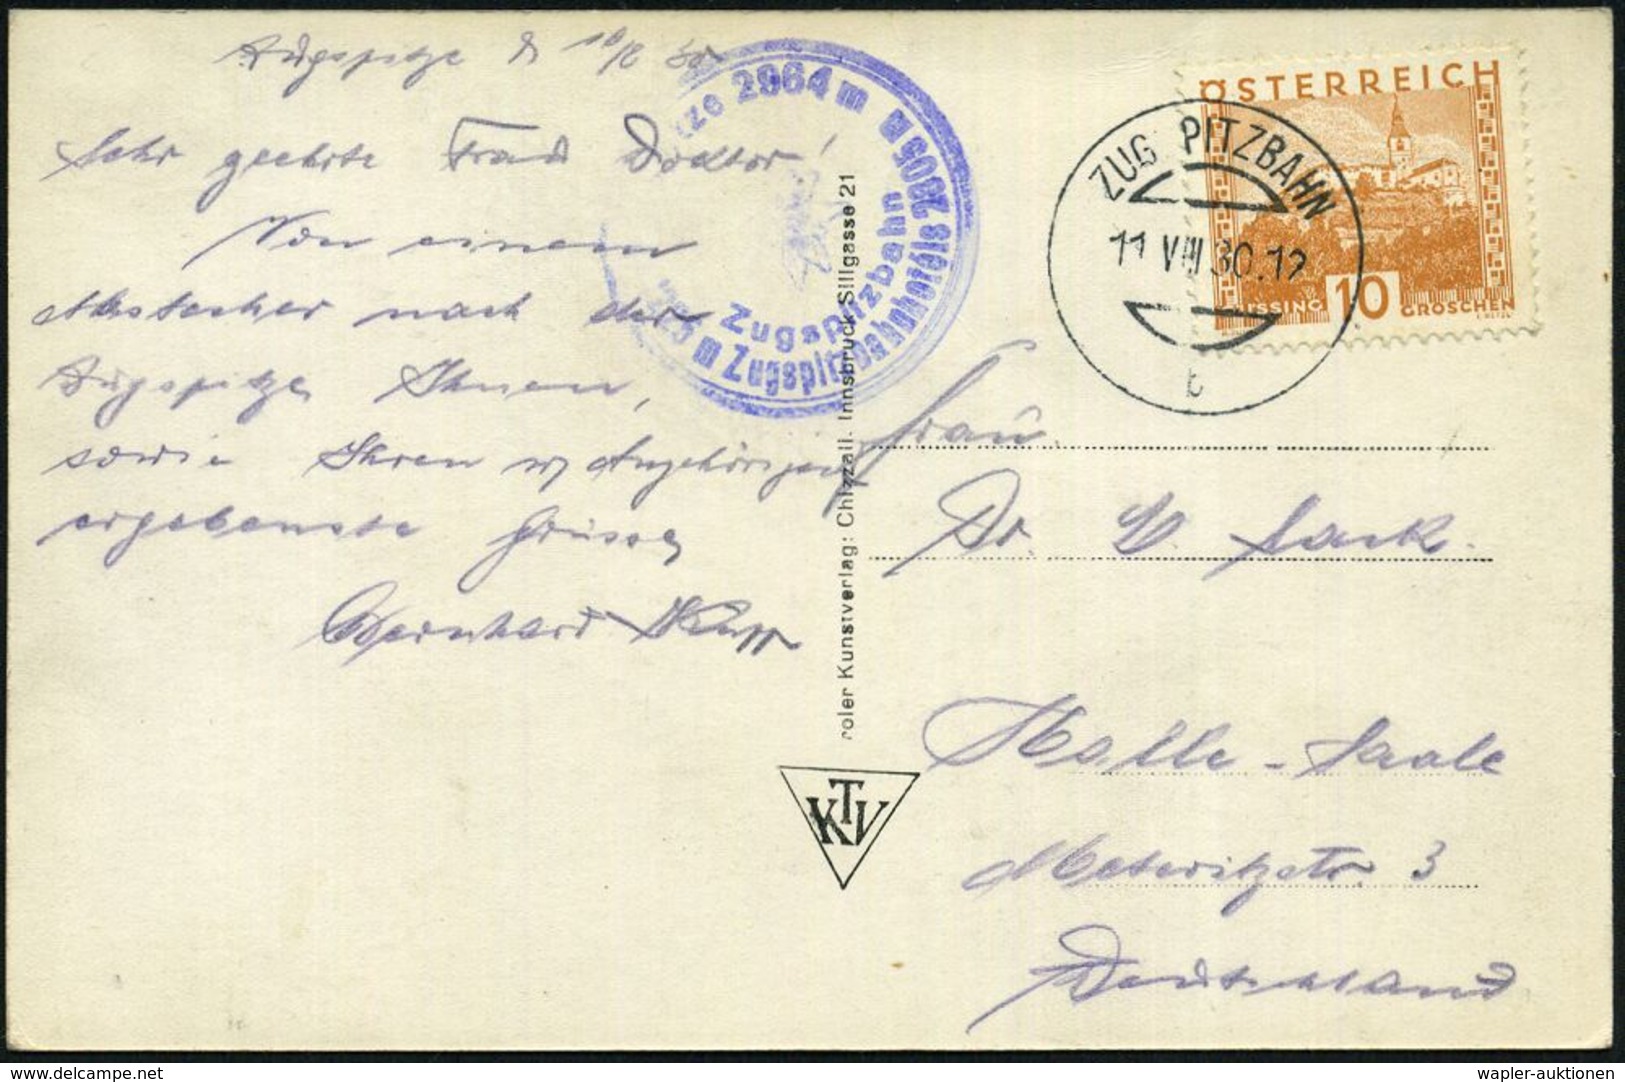 Zugspitze d 10/8 30
Sehr geehrte Frau Doktor!
Von einem
Abstecher nach der
Zugspitze Ihnen,
sowie Ihren w/ Angehörigen
ergebenste Grüsse
Bernhard
tze 2964 m
2805 m
225 m Zugspitzbahnhotels
Zugspitzbahn
roler Kunstverlag: Chizzali. Innsbruck Sillgasse 21
KTV
ÖSTERREICH
10 GROSCHEN
ZUG PITZBAHN
11 VIII 30.12
b
Frau
Dr. W. Sack.
Halle-Saale
Deutschland
delcampe.net
wapler-auktionen